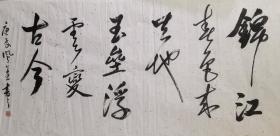 錦江
春色來
天地
玉壘浮
雲變
古今